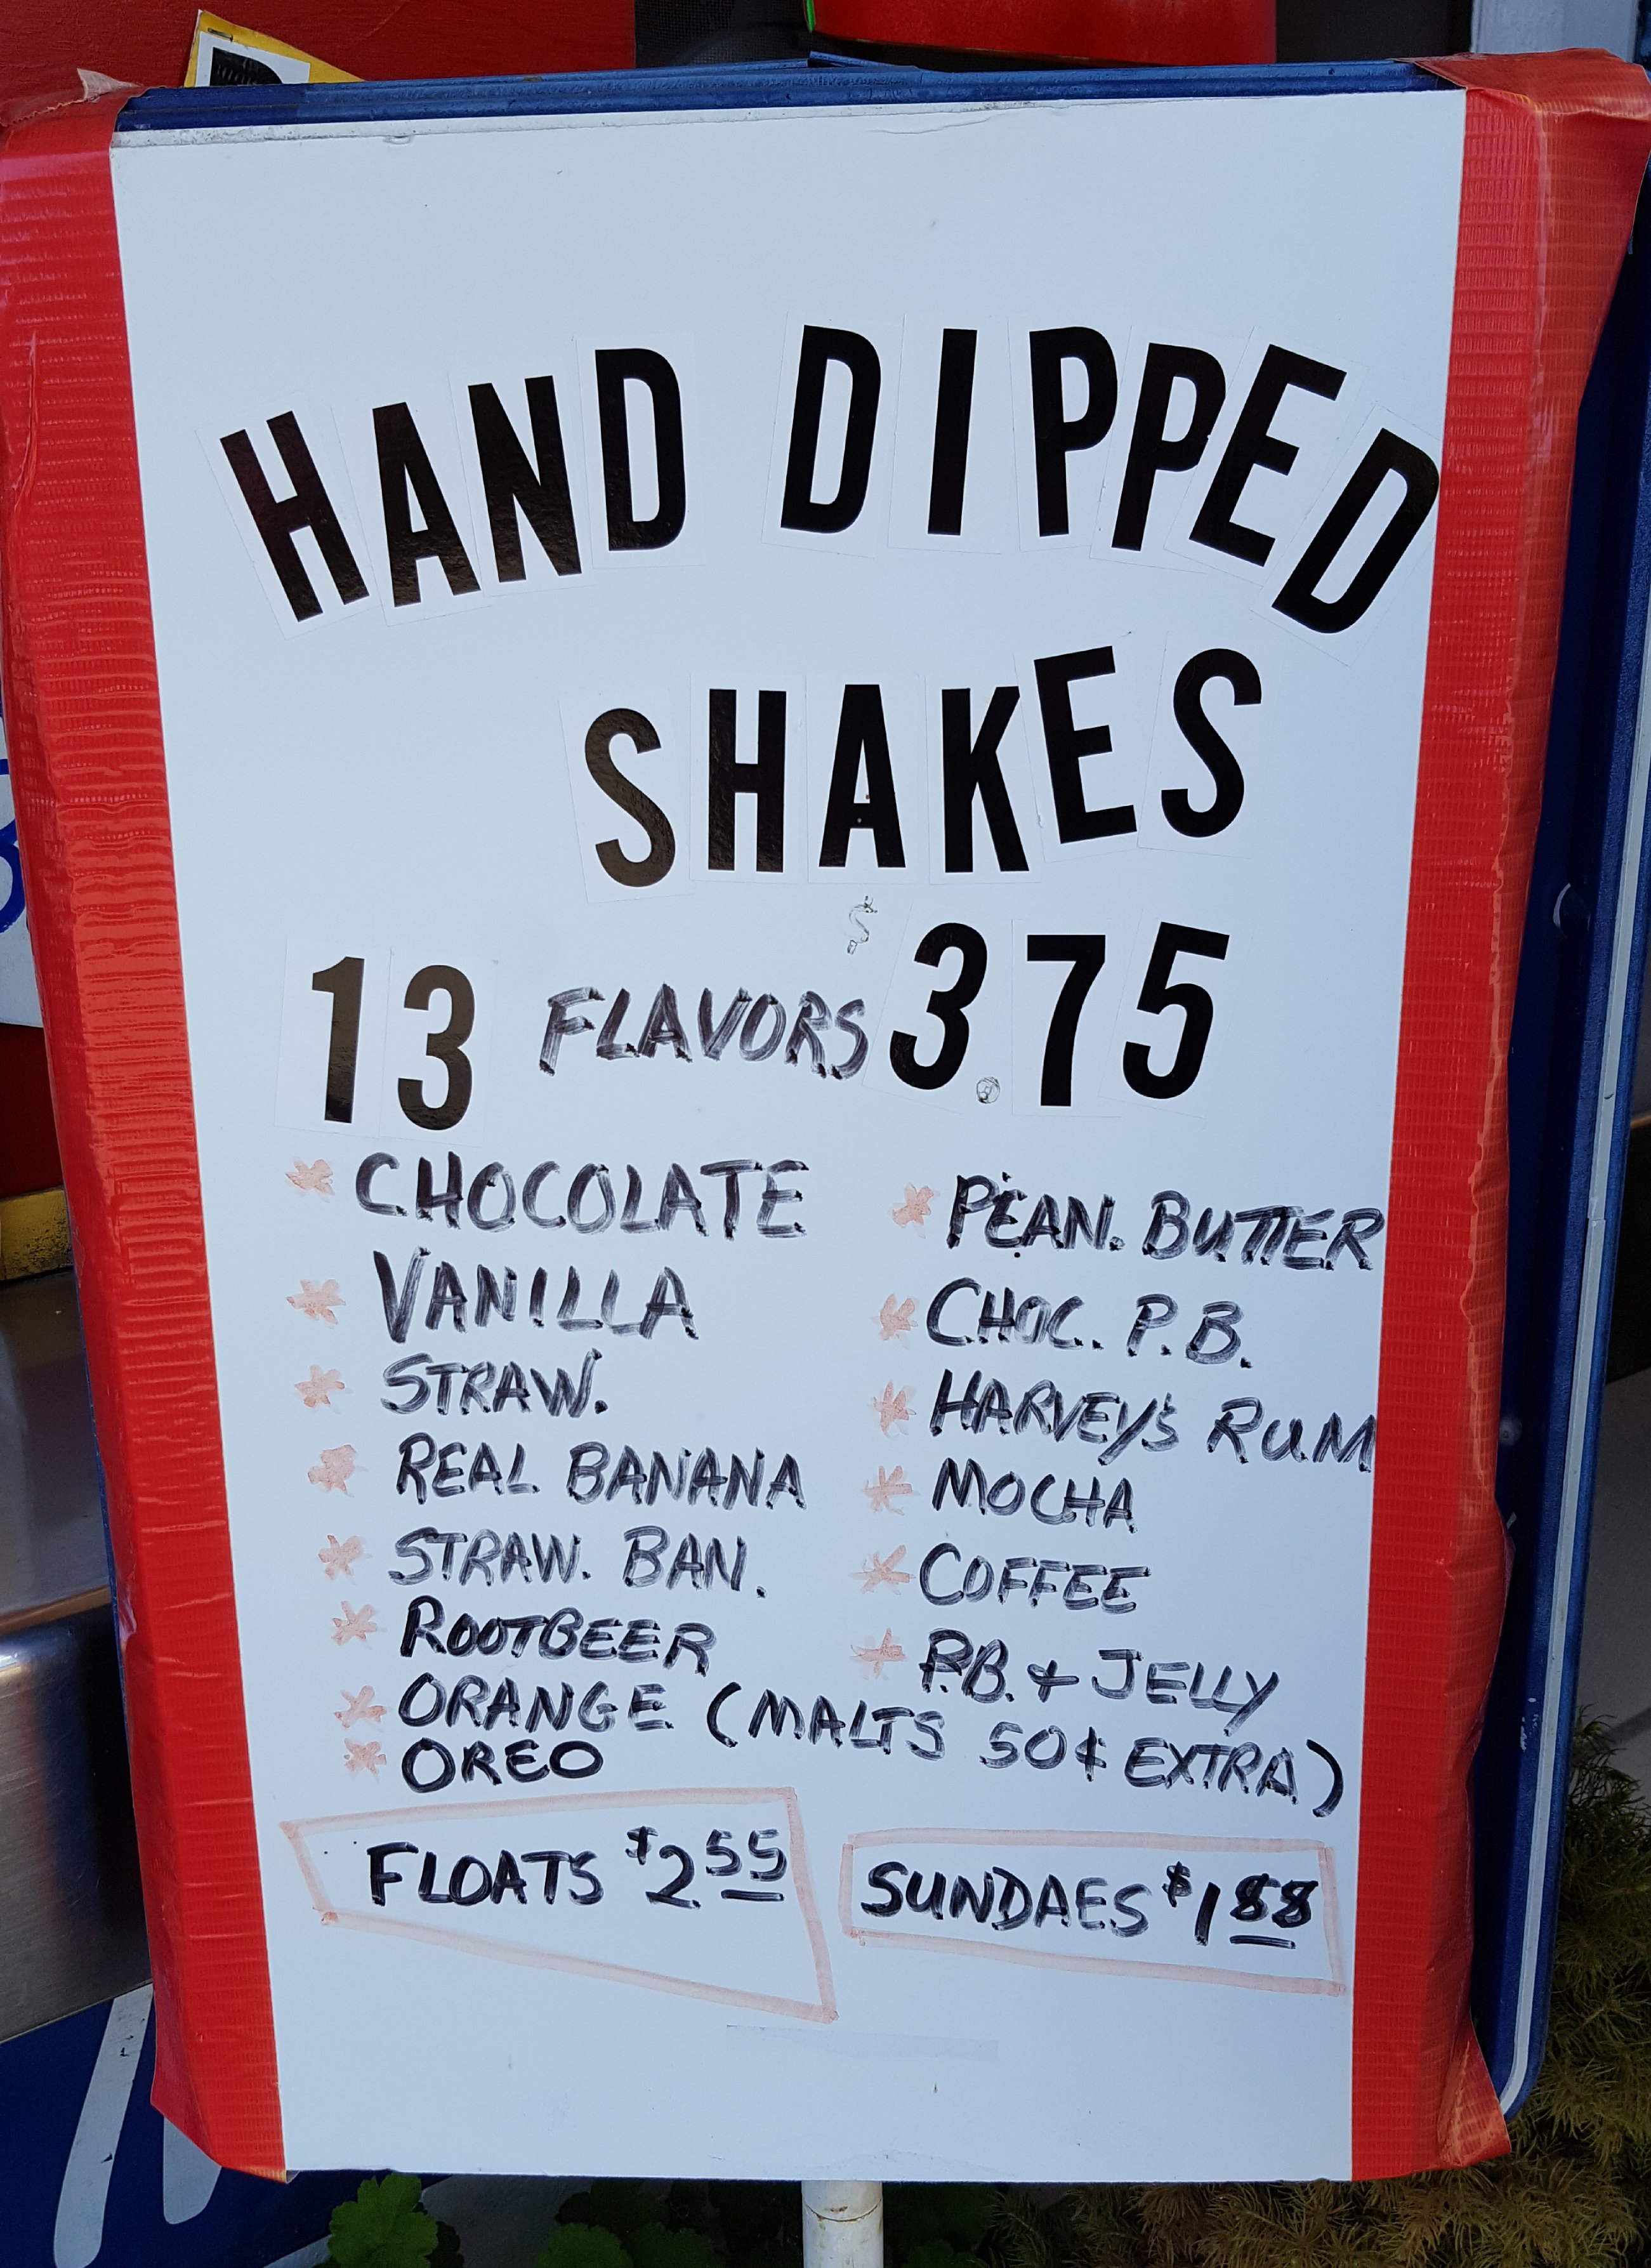 HAND DIPPED
SHAKES
13 FLAVORS $3.75
* CHOCOLATE
* VANILLA
* STRAW.
* REAL BANANA
* STRAW. BAN.
* ROOTBEER
* ORANGE
* OREO
* PEAN. BUTTER
* CHOC. P.B.
* HARVEY'S RUM
* MOCHA
* COFFEE
* P.B. + JELLY
(MALTS 50¢ EXTRA)
FLOATS $2.55
SUNDAES $1.88